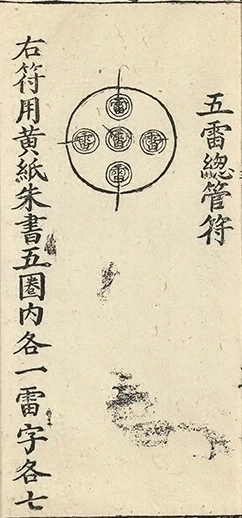 五雷總管符
雷
雷 雷 雷
雷
右符用黃紙朱書五圈内各一雷字各七